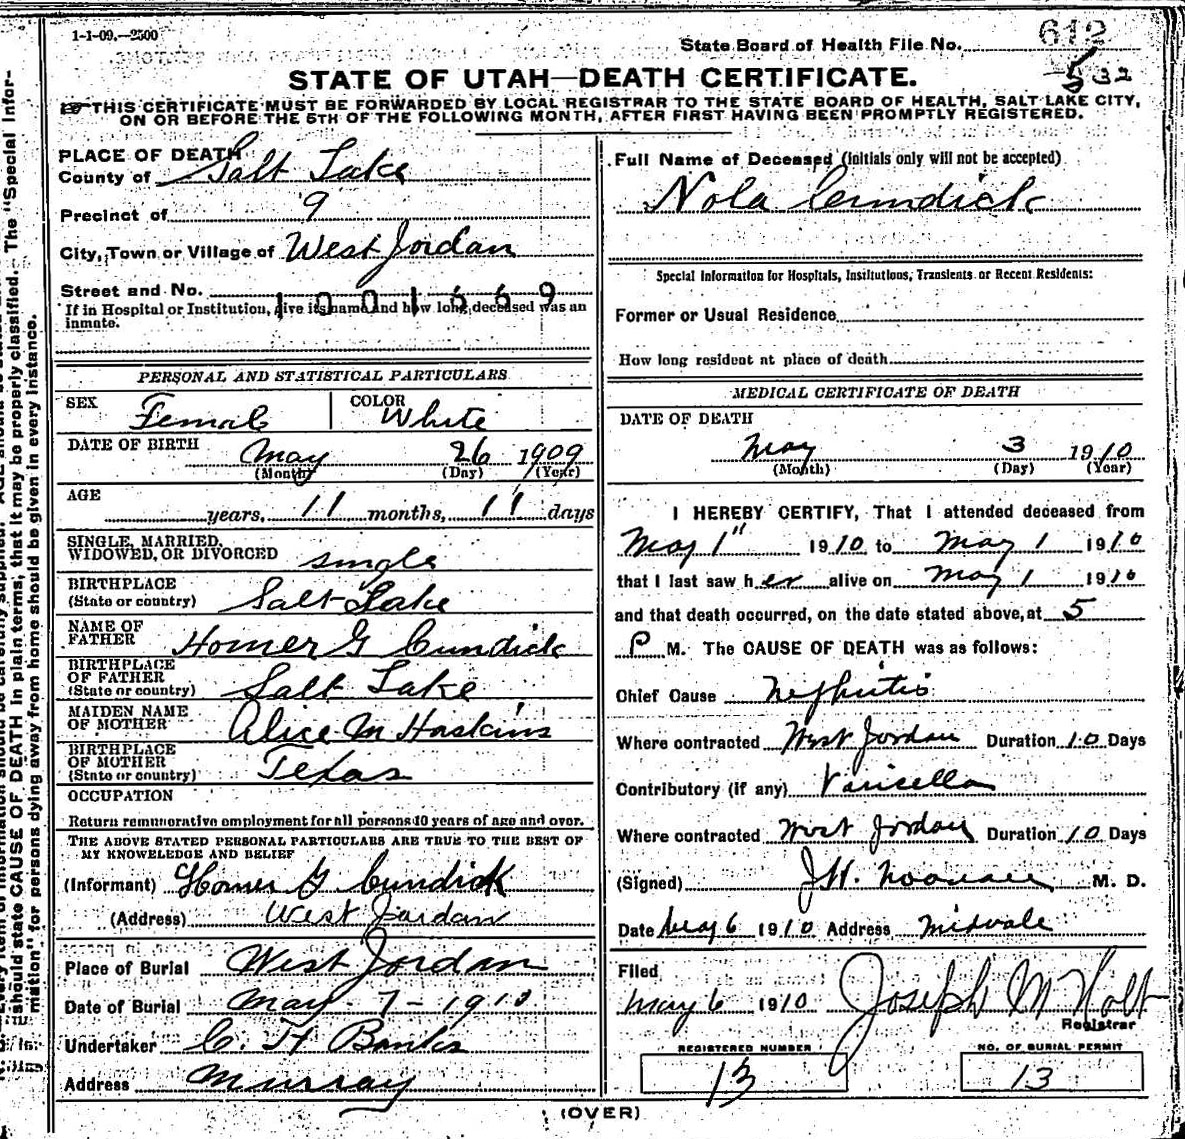 1-1-09.—2500
State Board of Health File No. 612
532
STATE OF UTAH—DEATH CERTIFICATE.
THIS CERTIFICATE MUST BE FORWARDED BY LOCAL REGISTRAR TO THE STATE BOARD OF HEALTH, SALT LAKE CITY,
ON OR BEFORE THE 5TH OF THE FOLLOWING MONTH, AFTER FIRST HAVING BEEN PROMPTLY REGISTERED.
PLACE OF DEATH
County of Salt Lake
Precinct of 9
City, Town or Village of West Jordan
Street and No.
1001669
If in Hospital or Institution, give its name and how long deceased was an
inmate.
PERSONAL AND STATISTICAL PARTICULARS
SEX Female COLOR White
DATE OF BIRTH May 26 1909
(Month) (Day) (Year)
AGE
years, 11 months, 11 days
SINGLE, MARRIED,
WIDOWED, OR DIVORCED single
BIRTHPLACE
(State or country) Salt Lake
NAME OF
FATHER Homer G Cundick
BIRTHPLACE
OF FATHER
(State or country) Salt Lake
MAIDEN NAME
OF MOTHER Alice M Haskins
BIRTHPLACE
OF MOTHER
(State or country) Texas
OCCUPATION
Return remunerative employment for all persons 10 years of age and over.
THE ABOVE STATED PERSONAL PARTICULARS ARE TRUE TO THE BEST OF
MY KNOWELEDGE AND BELIEF
(Informant) Homer G Cundick
(Address) West Jordan
Place of Burial West Jordan
Date of Burial May 7 - 1910
Undertaker C. H Banks
Address Murray
Full Name of Deceased (initials only will not be accepted)
Nola Cundick
Special Information for Hospitals, Institutions, Transients or Recent Residents:
Former or Usual Residence
How long resident at place of death
MEDICAL CERTIFICATE OF DEATH
DATE OF DEATH
May 3 1910
(Month) (Day) (Year)
I HEREBY CERTIFY, That I attended deceased from
May 1" 1910 to May 1 1910
that I last saw her alive on May 1 1910
and that death occurred, on the date stated above, at 5
P M. The CAUSE OF DEATH was as follows:
Chief Cause Nephritis
Where contracted West Jordan Duration 10 Days
Contributory (if any) Varicella
Where contracted West Jordan Duration 10 Days
(Signed) J.W. M. D.
Date May 6 1910 Address Midvale
Filed
May 6 1910 Joseph M Holt
Registrar
REGISTERED NUMBER
13
NO. OF BURIAL PERMIT
13
(OVER)
should state CAUSE OF DEATH in plain terms, that it may be properly classified. The "Special Infor-
mation" for persons dying away from home should be given in every instance.